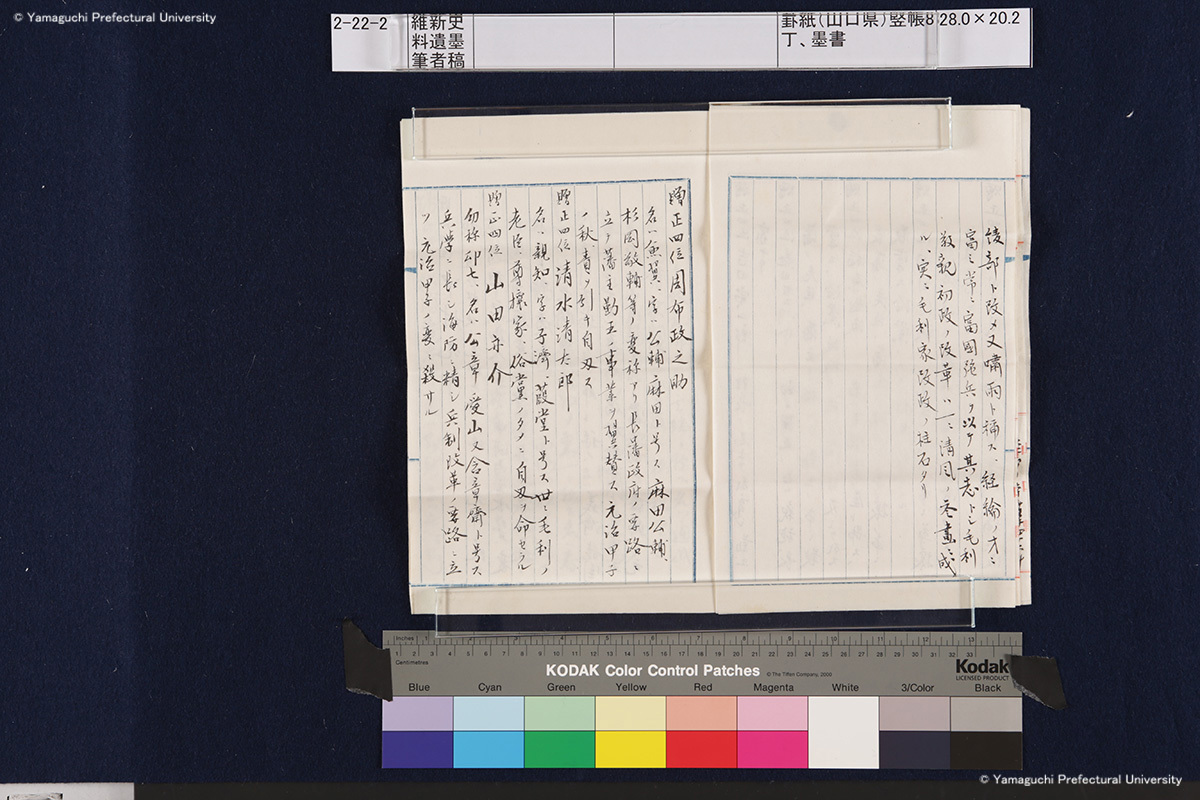 © Yamaguchi Prefectural University
2-22-2
維新史
料遺墨
筆者稿
罫紙(山口県)竪帳8
丁、墨書
28.0×20.2
綾部ト改メ又嘯雨ト称ス、経綸ノ才ニ
富ミ常ニ富国強兵ヲ以テ其志トシ毛利
敬親初政ノ改革ハ一ニ清風ノ参画ニ成
ル、実ニ毛利家改政ノ柱石タリ
贈正四位周布政之助
名ハ兼翼、字ハ公輔麻田ト号ス麻田公輔、
杉岡敏輔等ノ変称アリ長藩政府ノ要路ニ
立チ藩主勤王ノ事業ヲ翼賛ス元治甲子
ノ秋責ヲ引キ自刃ス
贈正四位清水清太郎
名ハ親知、字ハ子濟、葭堂ト号ス世々毛利ノ
老臣、尊攘家、俗党ノタメニ自刃ヲ命セラル
贈正四位 山田亦介
初称卯七、名ハ公章愛山又含章齋ト号ス
兵学ニ長シ海防ニ精シ兵制改革ノ要路ニ立
ツ元治甲子ノ変ニ殺サル
Inches
Centimetres
KODAK Color Control Patches
© The Tiffen Company, 2000
Kodak
LICENSED PRODUCT
Blue Cyan Green Yellow Red Magenta White 3/Color Black
© Yamaguchi Prefectural University